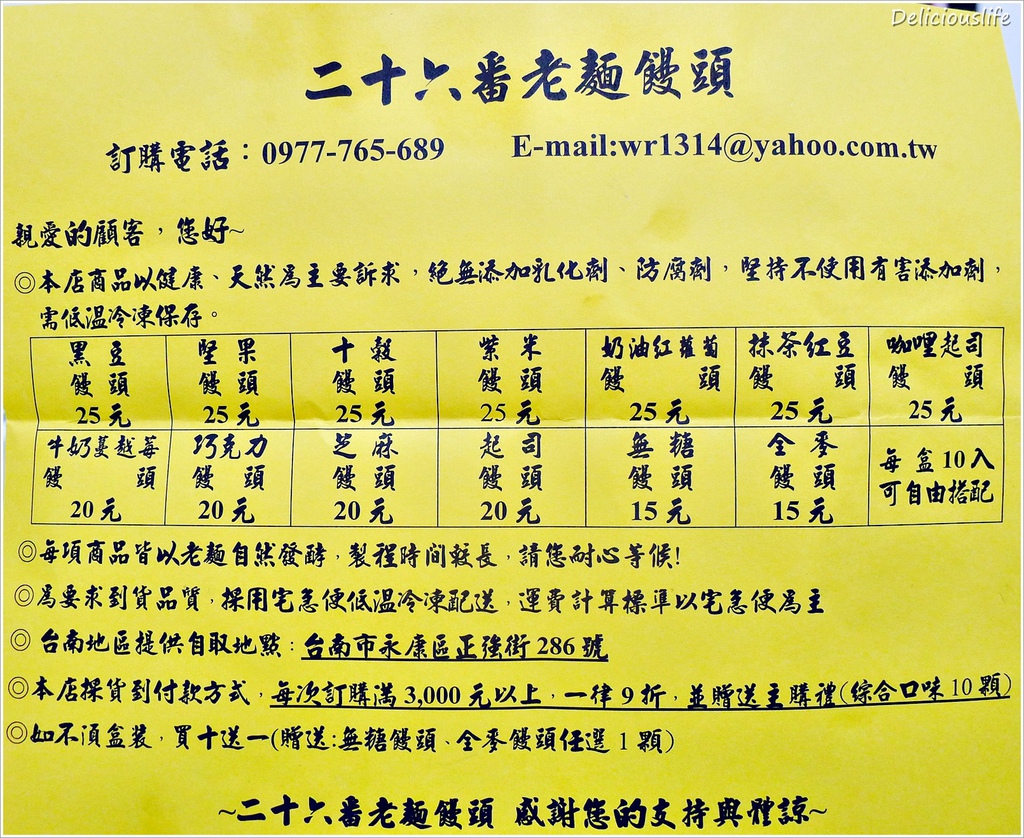 Deliciouslife
二十六番老麵饅頭
訂購電話：0977-765-689 E-mail:wr1314@yahoo.com.tw
親愛的顧客，您好~
◎本店商品以健康、天然為主要訴求，絕無添加乳化劑、防腐劑，堅持不使用有害添加劑，
需低溫冷凍保存。
黑豆 堅果 十穀 紫米 奶油紅蘿蔔 抹茶紅豆 咖哩起司
饅頭 饅頭 饅頭 饅頭 饅頭 饅頭 饅頭
25元 25元 25元 25元 25元 25元 25元
牛奶蔓越莓 巧克力 芝麻 起司 無糖 全麥 每盒10入
饅頭 饅頭 饅頭 饅頭 饅頭 饅頭 可自由搭配
20元 20元 20元 20元 15元 15元
◎每項商品皆以老麵自然發酵，製程時間較長，請您耐心等候!
◎為要求到貨品質，採用宅急便低溫冷凍配送，運費計算標準以宅急便為主
◎ 台南地區提供自取地點：台南市永康區正強街286號
◎本店採貨到付款方式，每次訂購滿3,000元以上，一律9折，並贈送主購禮(綜合口味10顆)
◎如不須盒裝，買十送一(贈送:無糖饅頭、全麥饅頭任選1顆)
~二十六番老麵饅頭 感謝您的支持與體諒~